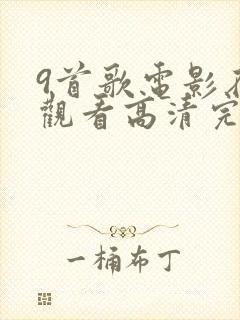 9首歌电影
觀看高清完
一桶布丁